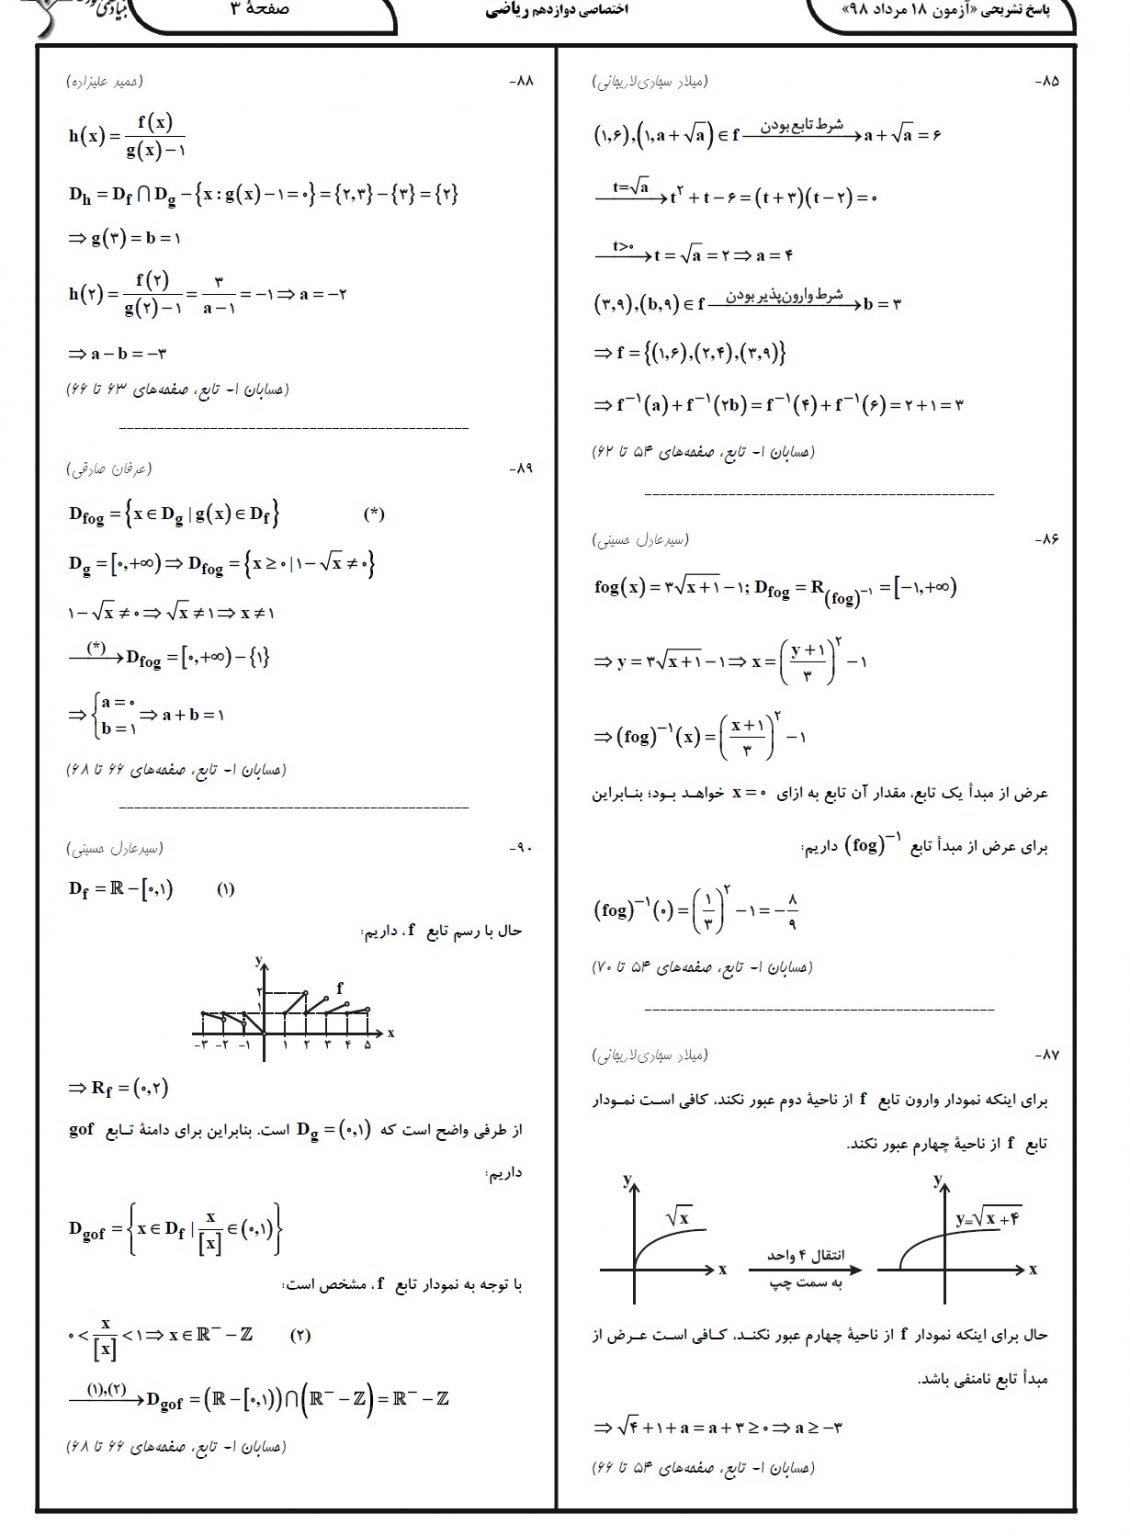 پاسخ تشریحی «آزمون ۱۸ مرداد ۹۸»
اختصاصی دوازدهم ریاضی
صفحهٔ ۳
۸۵- (میلاد سجادی‌لاریجانی)
(۱,۶),(۱,a+√a) ∈ f —شرط تابع بودن→ a+√a = ۶
—t=√a→ t² + t − ۶ = (t+۳)(t−۲) = ۰
—t>۰→ t = √a = ۲ ⇒ a = ۴
(۳,۹),(b,۹) ∈ f —شرط وارون‌پذیر بودن→ b = ۳
⇒ f = {(۱,۶),(۲,۴),(۳,۹)}
⇒ f⁻¹(a) + f⁻¹(۲b) = f⁻¹(۴) + f⁻¹(۶) = ۲ + ۱ = ۳
(حسابان ۱- تابع، صفحه‌های ۵۴ تا ۶۲)
۸۶- (سیدعادل حسینی)
fog(x) = ۳√(x+۱) − ۱; D_fog = R_(fog)⁻¹ = [−۱,+∞)
⇒ y = ۳√(x+۱) − ۱ ⇒ x = ((y+۱)/۳)² − ۱
⇒ (fog)⁻¹(x) = ((x+۱)/۳)² − ۱
عرض از مبدأ یک تابع، مقدار آن تابع به ازای x = ۰ خواهد بود؛ بنابراین
برای عرض از مبدأ تابع (fog)⁻¹ داریم:
(fog)⁻¹(۰) = (۱/۳)² − ۱ = −۸/۹
(حسابان ۱- تابع، صفحه‌های ۵۴ تا ۷۰)
۸۷- (میلاد سجادی‌لاریجانی)
برای اینکه نمودار وارون تابع f از ناحیهٔ دوم عبور نکند، کافی است نمودار
تابع f از ناحیهٔ چهارم عبور نکند.
y
√x
x
انتقال ۴ واحد
به سمت چپ
y
y=√(x+۴)
x
حال برای اینکه نمودار f از ناحیهٔ چهارم عبور نکند، کافی است عرض از
مبدأ تابع نامنفی باشد.
⇒ √۴ + ۱ + a = a + ۳ ≥ ۰ ⇒ a ≥ −۳
(حسابان ۱- تابع، صفحه‌های ۵۴ تا ۶۶)
۸۸- (حمید علیزاده)
h(x) = f(x)/(g(x)−۱)
D_h = D_f ∩ D_g − {x : g(x) − ۱ = ۰} = {۲,۳} − {۳} = {۲}
⇒ g(۳) = b = ۱
h(۲) = f(۲)/(g(۲)−۱) = ۳/(a−۱) = −۱ ⇒ a = −۲
⇒ a − b = −۳
(حسابان ۱- تابع، صفحه‌های ۶۳ تا ۶۶)
۸۹- (عرفان صادقی)
D_fog = {x ∈ D_g | g(x) ∈ D_f} (*)
D_g = [۰,+∞) ⇒ D_fog = {x ≥ ۰ | ۱ − √x ≠ ۰}
۱ − √x ≠ ۰ ⇒ √x ≠ ۱ ⇒ x ≠ ۱
—(*)→ D_fog = [۰,+∞) − {۱}
⇒ {a = ۰, b = ۱ ⇒ a + b = ۱
(حسابان ۱- تابع، صفحه‌های ۶۶ تا ۶۸)
۹۰- (سیدعادل حسینی)
D_f = ℝ − [۰,۱) (۱)
حال با رسم تابع f، داریم:
y
۲
f
۱
−۳ −۲ −۱ ۱ ۲ ۳ ۴ ۵ x
⇒ R_f = (۰,۲)
از طرفی واضح است که D_g = (۰,۱) است. بنابراین برای دامنهٔ تابع gof
داریم:
D_gof = {x ∈ D_f | x/[x] ∈ (۰,۱)}
با توجه به نمودار تابع f، مشخص است:
۰ < x/[x] < ۱ ⇒ x ∈ ℝ⁻ − ℤ (۲)
—(۱),(۲)→ D_gof = (ℝ − [۰,۱)) ∩ (ℝ⁻ − ℤ) = ℝ⁻ − ℤ
(حسابان ۱- تابع، صفحه‌های ۶۶ تا ۶۸)